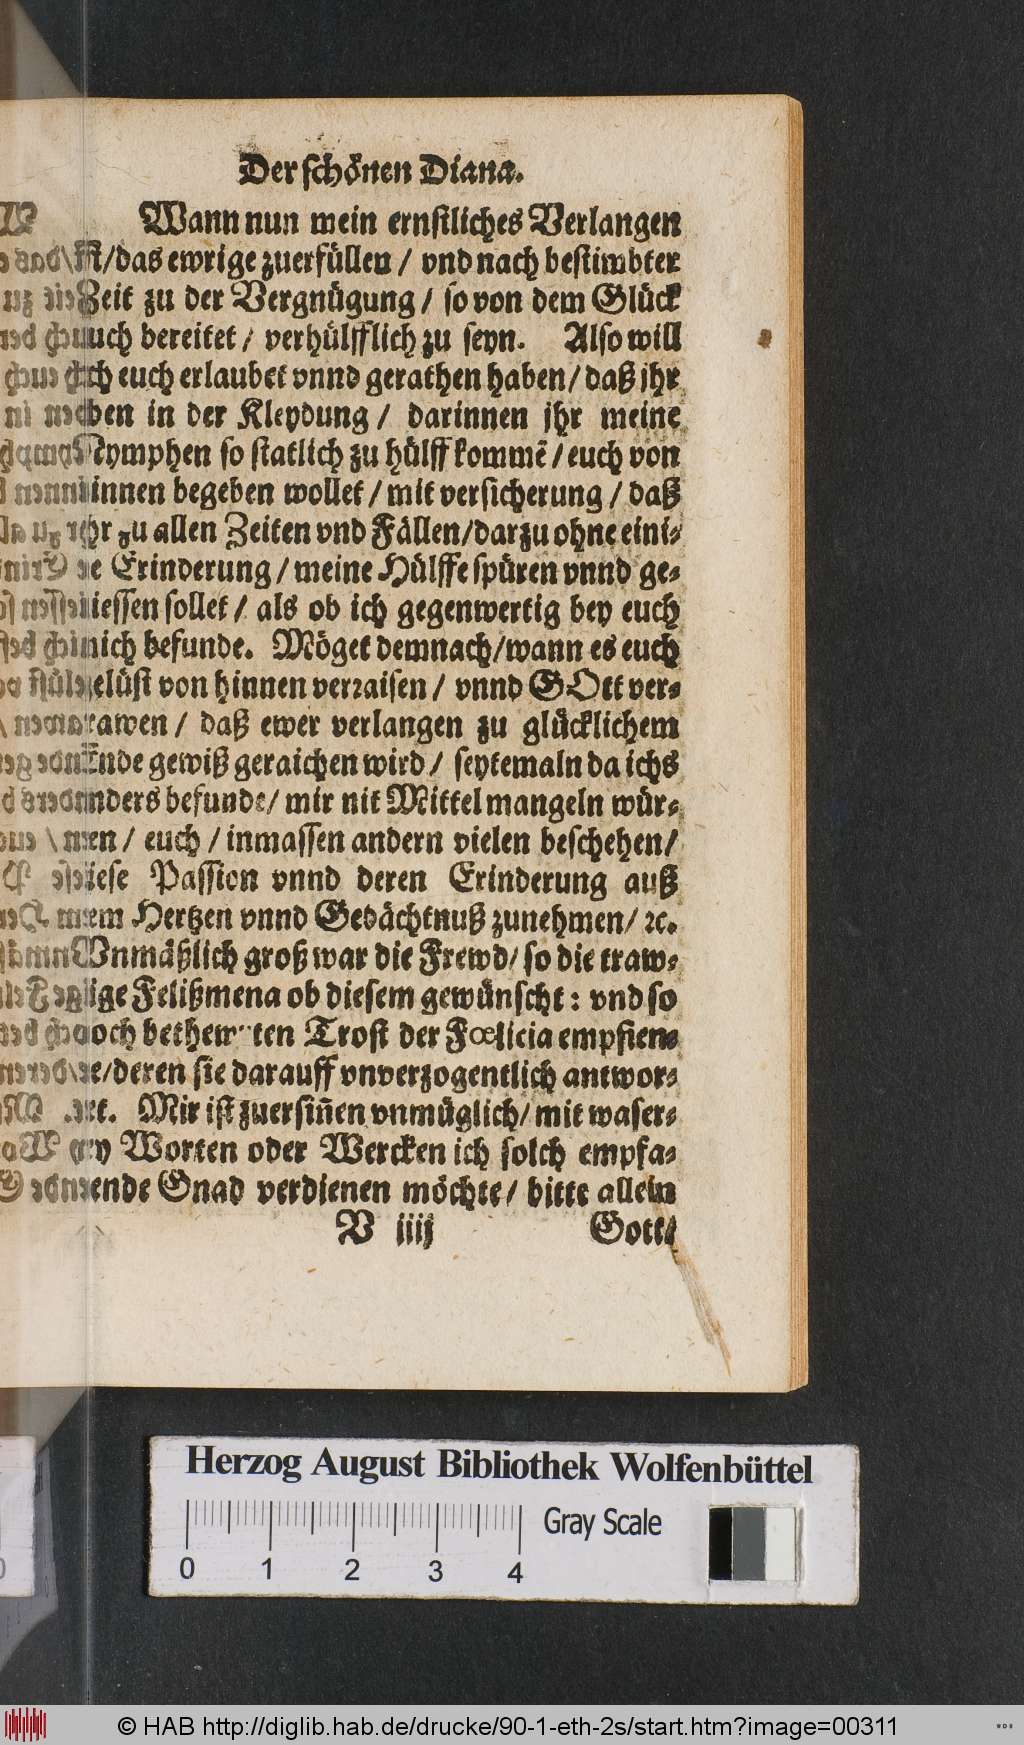 Der schönen Diana.
Wann nun mein ernstliches Verlangen
ist/das ewrige zuerfüllen / vnd nach bestimbter
Zeit zu der Vergnügung / so von dem Glück
euch bereitet / verhülfflich zu seyn. Also will
ich euch erlaubet vnnd gerathen haben / daß jhr
eben in der Kleydung / darinnen jhr meine
Nymphen so statlich zu hülff kommē / euch von
hinnen begeben wollet / mit versicherung / daß
jhr zu allen Zeiten vnd Fällen/darzu ohne eini-
ge Erinderung / meine Hülffe spüren vnnd ge-
niessen sollet / als ob ich gegenwertig bey euch
mich befunde. Möget demnach/wann es euch
gelüst von hinnen verraisen / vnnd GOtt ver-
trawen / daß ewer verlangen zu glücklichem
Ende gewiß geraichen wird / seytemaln da ichs
anders befunde/ mir nit Mittel mangeln wür-
den / euch / inmassen andern vielen beschehen/
diese Passion vnnd deren Erinderung auß
ewrem Hertzen vnnd Gedächtnuß zunehmen/ ꝛc.
Vnmäßlich groß war die Frewd/ so die traw-
rige Felißmena ob diesem gewünscht: vnd so
hoch bethewrten Trost der Fœlicia empfien-
ge/deren sie darauff vnverzogentlich antwor-
tet. Mir ist zuersiñen vnmüglich/ mit waser-
ley Worten oder Wercken ich solch empfa-
hende Gnad verdienen möchte/ bitte allein
V iiij Gott/
Herzog August Bibliothek Wolfenbüttel
0 1 2 3 4 Gray Scale
© HAB http://diglib.hab.de/drucke/90-1-eth-2s/start.htm?image=00311